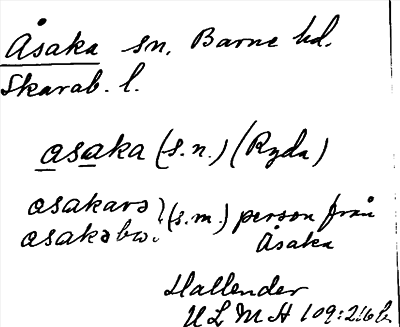 Åsaka sn. Barne hd.
Skarab. l.
asaka (s.n.) (Ryda)
asakarə } (s.m.) person från
asakəbω. Åsaka
Hallender
ULMA 109:216 b.